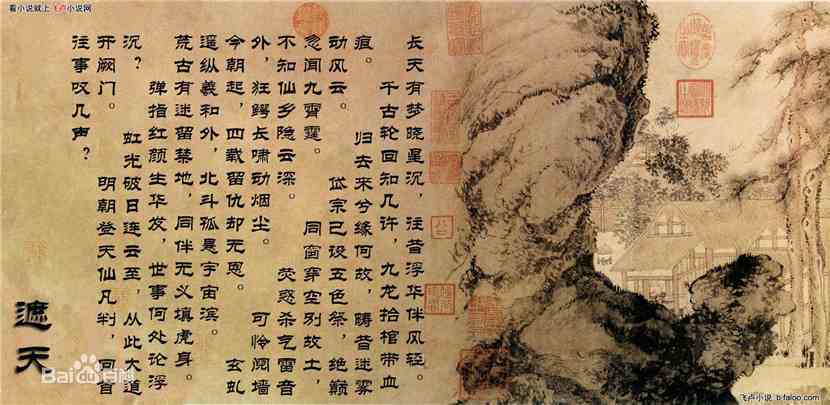 看小说就上 飞卢小说网
长天有梦晓星沉，往昔浮华伴风轻。
千古轮回知几许，九龙拾棺带血
痕。 归去来兮缘何故，畴昔迷雾
动风云。 岱宗已设五色祭，绝巅
忽闻九霄霆。 同窗穿空别故土，
不知仙乡隐云深。 荧惑杀气雷音
外，狂鳄长啸动烟尘。 可怜阋墙
今朝起，四载留仇却无恩。 玄虬
遥纵羲和外，北斗孤悬宇宙滨。
荒古有迷留禁地，同伴无义填虎身。
弹指红颜生华发，世事何处论浮
沉？ 虹光破日连云至，从此大道
开阙门。 明朝登天仙凡判，回首
往事叹几声？
遮天
Bai百科
飞卢小说 b.faloo.com